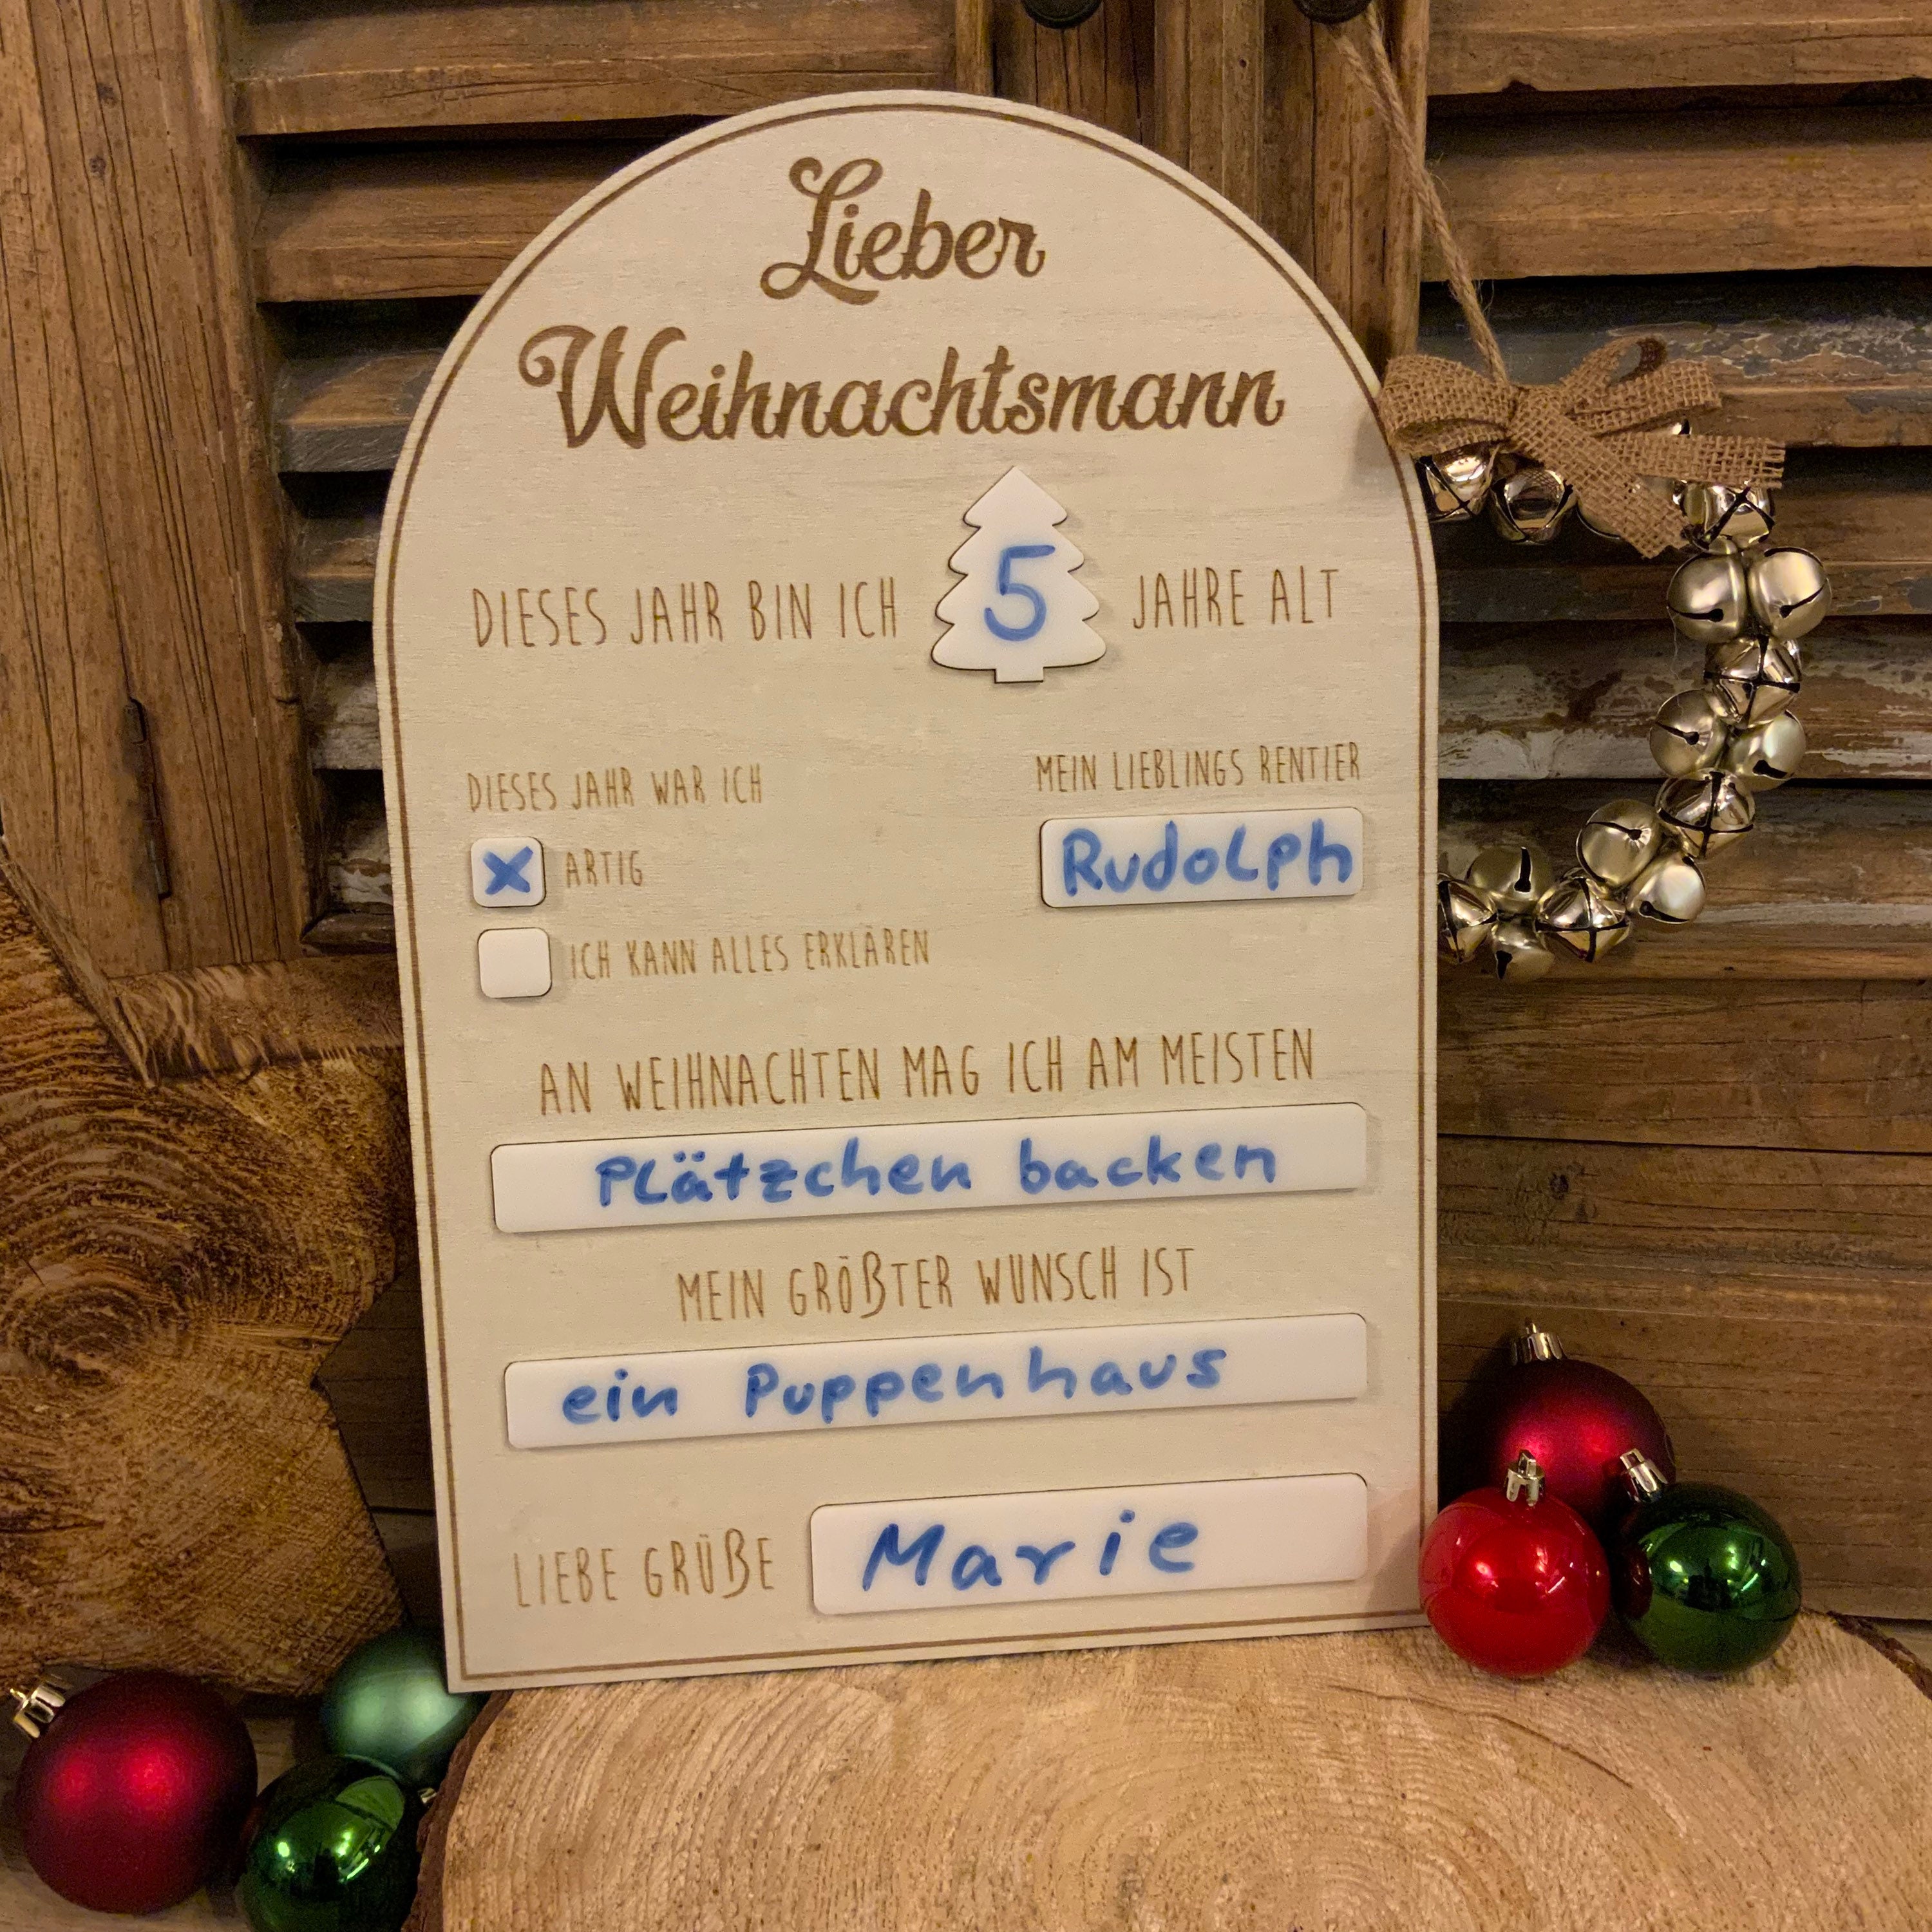 Lieber
Weihnachtsmann
DIESES JAHR BIN ICH 5 JAHRE ALT
DIESES JAHR WAR ICH
X ARTIG
ICH KANN ALLES ERKLÄREN
MEIN LIEBLINGS RENTIER
Rudolph
AN WEIHNACHTEN MAG ICH AM MEISTEN
Plätzchen backen
MEIN GRÖßTER WUNSCH IST
ein Puppenhaus
LIEBE GRÜßE Marie